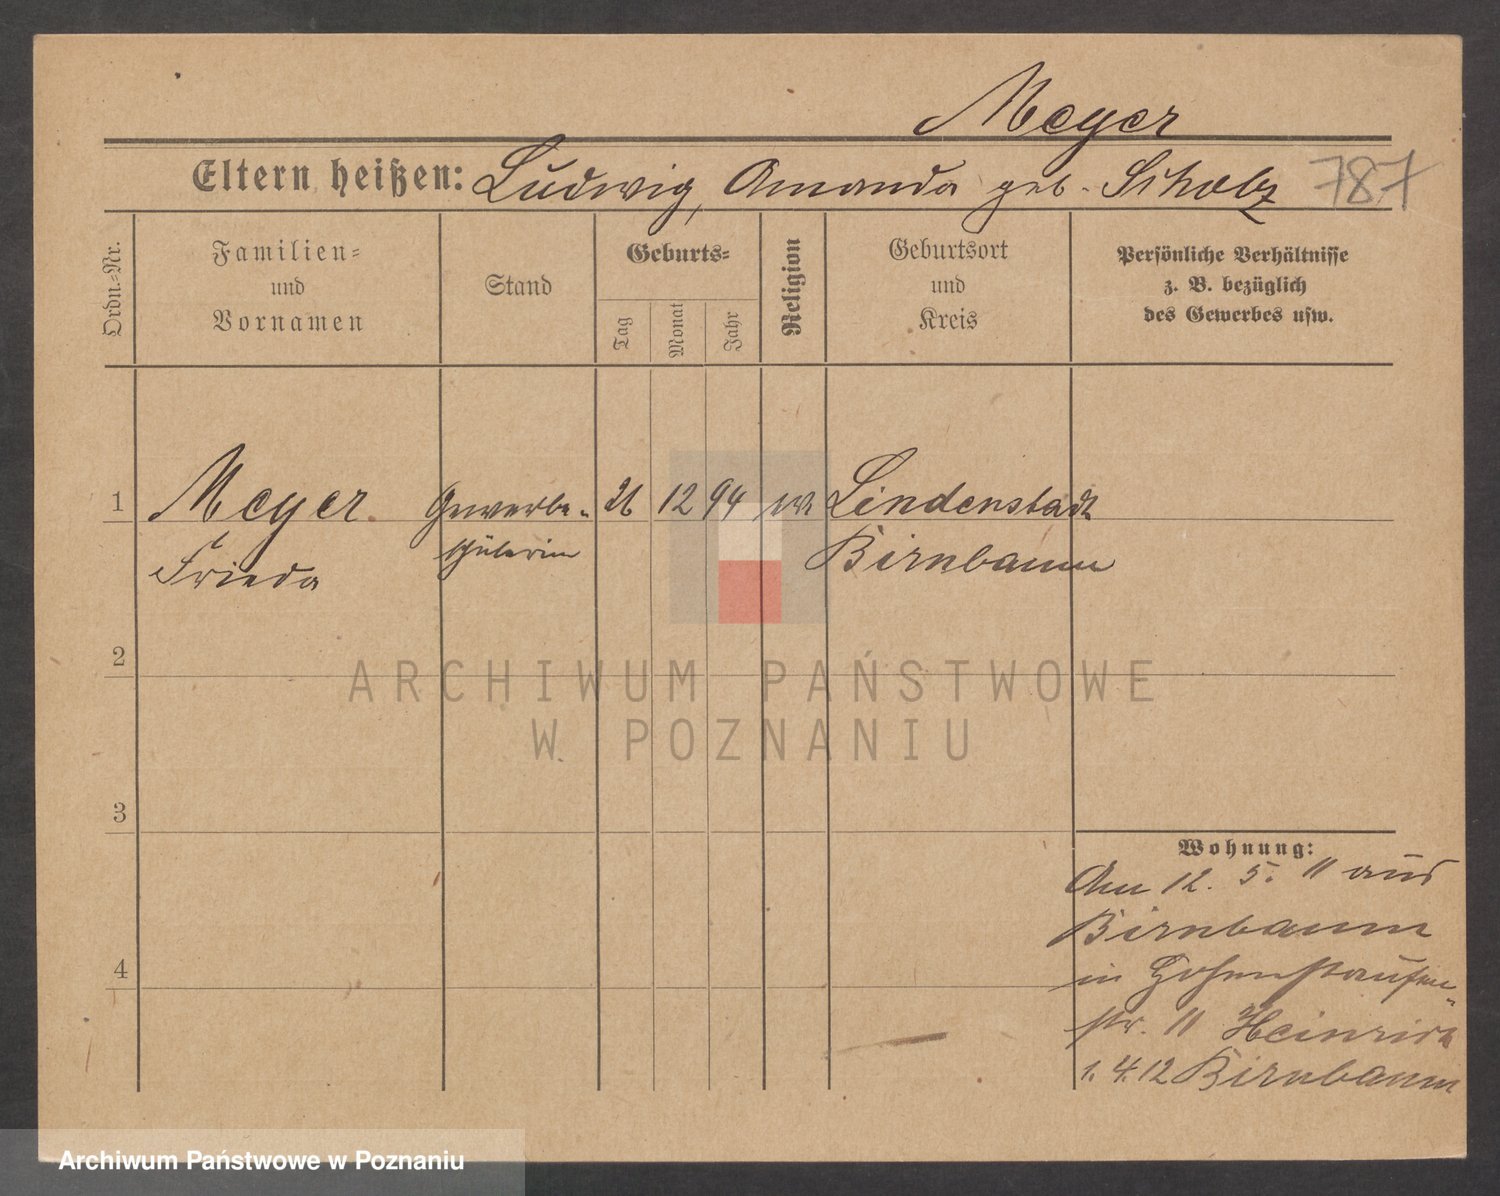 Meyer
Eltern heißen: Ludwig, Amanda geb. Scholz 787
Ordn.-Nr.
Familien-
und
Vornamen
Stand
Geburts-
Tag
Monat
Jahr
Religion
Geburtsort
und
Kreis
Persönliche Verhältnisse
z. B. bezüglich
des Gewerbes usw.
1 Meyer Gewerbe- 26 12 94 ev Lindenstadt
Frieda schülerin Birnbaum
2
3
4
Wohnung:
Am 12. 5. 11 aus
Birnbaum
in Hohenstaufen-
str. 11 Heinrich
1. 4. 12 Birnbaum
ARCHIWUM PAŃSTWOWE
W POZNANIU
Archiwum Państwowe w Poznaniu